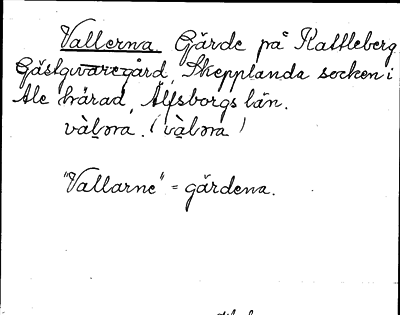 Vallerna Gärde på Kattleberg
Gästgivaregård, Skepplanda socken i
Ale härad, Älfsborgs län.
"Vallarne" = gärdena.